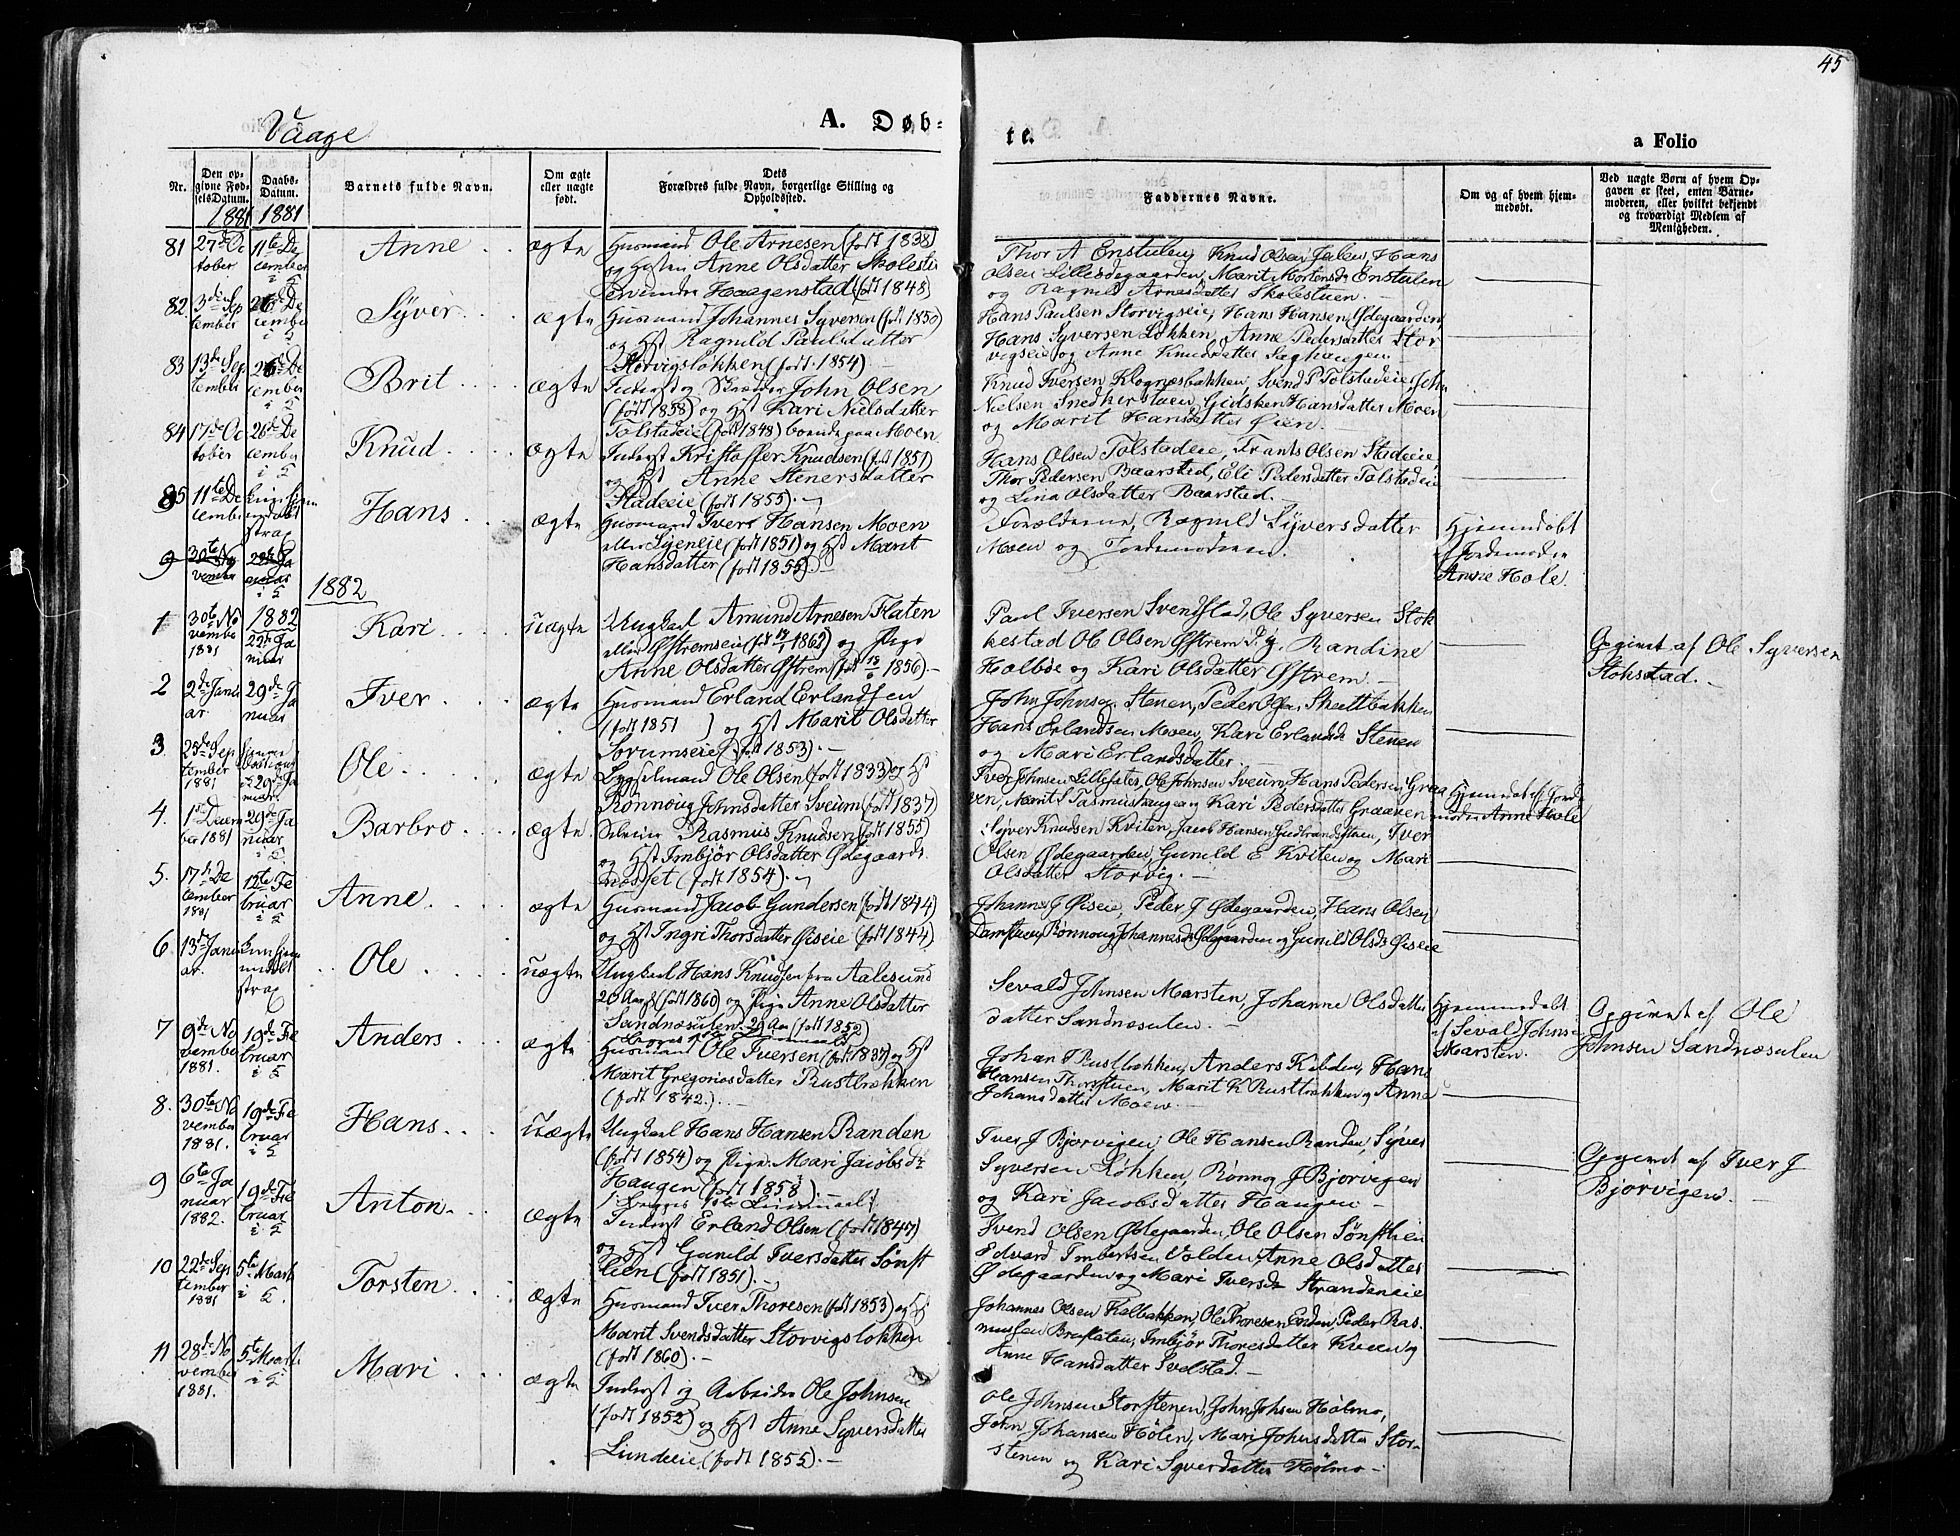 45
Vaage
A. Døb-
te.
a Folio
Nr.
Den op-
givne Fød-
selsDatum.
Daabs-
Datum.
Barnets fulde Navn.
Om ægte
eller uægte
født.
Dets
Forældres fulde Navn, borgerlige Stilling og
Opholdssted.
Faddernes Navne.
Om og af hvem hjem-
medøbt.
Ved uægte Børn af hvem Op-
gaven er skeet, enten Barne-
moderen, eller hvilket bekjendt
og troværdigt Medlem af
Menigheden.
1881 1881
81 27de Oc
tober
11te De
cember
i K
Anne
ægte
Husmand Ole Arnesen (født 1838)
og Hustru Anne Olsdatter Skolestu
Haagenstad (født 1848)
Thor A Enstulen, Knud Olsen Jælen, Hans
Olsen Lillesdegaarden, Marit Mortensd. Enstulen
og Ragnild Arnesdatter Skolestuen.
82. 3die Sep
tember
26de De
cember
Syver
ægte
Husmand Johannes Syversen (født 1850)
og Hst Ragnild Paulsdatter
Storvigsløkken (født 1854).
Hans Paulsen Storvigseie, Hans Hansen Ødegaarden,
Hans Syversen Løkken, Anne Pedersdatter Stor
vigseie og Anne Knudsdatter Saghaugen
83 13de Sep
tember
26de De
cember
Brit
ægte
Inderst og Skrædder John Olsen
(født 1858) og Hst Kari Nielsdatter
Tolstadeie (født 1848) boende paa Moen
Knud Iversen Klognæsbakken, Svend P Tolstadeie, John
Nielsen Snedkerstuen, Gidsken Hansdatter Moen
og Marit Hansdatter Øien.
84 17de Oc
tober
26de De
cember
Knud
ægte
Inderst Kristoffer Knudsen (født 1851)
og Hst Anne Stenersdatter
Stadeeie (født 1855).
Hans Olsen Tolstadeie, Frants Olsen Stadeeie,
Thor Pedersen Baarstad, Eli Pedersdatter Tolstadeie
og Lina Olsdatter Baarstad.
85 11te De
cember
kun hjem
medøbt
strax
Hans
ægte
Husmand Iver Hansen Moen
eller Syeneie (født 1851) og Hst Marit
Hansdatter (født 1855).
Forældrene, Ragnild Syversdatter
Moen og Jordemoderen.
Hjemmedøbt
af Jordemoder
Anne Hole.
30te No
vember
1882
1 30te No
vember
1881
1882
22de Ja
nuar
Kari
uægte
Ungkarl Amund Arnesen Flaten
eller Østremseie og Pige
Anne Olsdatter Østrem
Paul Iversen Svendstad, Ole Syversen Stok
kestad Ole Olsen Østrem P.g. Randine
Holbøe og Kari Olsdatter Østrem
Opgivet af Ole Syversen
Stokstad.
2 2de Janu
ar
29de Ja
nuar
Iver
ægte
Husmand Erland Erlandsen
(født 1851 ) og Hst Marit Olsdatter
Sorumseie (født 1853).
John Johnsen Stenen, Peder Olsen Skattbakken
Hans Erlandsen Moen, Kari Erlandsd. Stenen
og Mari Erlandsdatter.
3. 25de Sep
tember
1881
29de Ja
nuar
Ole
ægte
Bygselmand Ole Olsen (født 1833) og Hst
Rønnoug Johnsdatter Sveum (født 1837)
Iver Johnsen Lillesæter, Ole Johnsen Sveum, Hans Pedersen Graa
ven, Marit S Rasmushaugen og Kari Pedersdatter Graaven
Hjemmedøbt af Jorde
moder Anne Hole
4. 1ste Decem
ber 1881
29de Ja
nuar
Barbro
ægte
Selveier Rasmus Knudsen (født 1855)
og Hst Imbjør Olsdatter Ødegaards
næsset (født 1854).
Syver Knudsen Kviten, Jacob Hansen Gudbrandstuen, Iver
Olsen Ødegaarden, Gunild E Kviten og Mari
Olsdatter Storvig.
5. 17de De
cember
1881
12te Fe
bruar
i K
Anne
ægte
Husmand Jacob Gundersen (født 1844)
og Hst Ingri Thorsdatter Øiseie (født 1844)
Johannes J Øiseie, Peder J Ødegaarden, Hans Olsen
Damstuen, Rønnoug Johannesd. Ødegaarden og Gunild Olsdr Øiseie
6. 13de Janu
ar.
kun hjem
medøbt
strax
Ole
uægte
Ungkarl Hans Knudsen fra Aalesund
20 Aar (født 1860) og Pige Anne Olsdatter
Sandnæsulen 29 Aar (født 1852)
Sevald Johnsen Marsten, Johanne Olsdatter
datter Sandnæsulen.
Hjemmedøbt
af Sevald Johnsen
Marsten.
Opgivet af Ole
Johnsen Sandnæsulen
7 9de No
vember
1881.
19de Fe
bruar
i K
Anders
ægte
Husmand Ole Iversen (født 1837) og Hst
Marit Gregoriusdatter Rustbrækken
(født 1842.)
Johan T Rustbrækken, Anders Kilden, Hans
Hansen Thorsstuen, Marit K Rustbrækken og Anne
Johansdatter Moen.
8. 30te No
vember
1881.
19de Fe
bruar
i K
Hans
uægte
Ungkarl Hans Hansen Randen
(født 1854) og Pige Mari Jacobsdr
Haugen (født 1858)
Iver J Bjørvigen, Ole Hansen Randen, Syver
Syversen Løkken, Rønnog J Bjørvigen
og Kari Jacobsdatter Haugen
Opgivet af Iver J
Bjørvigen.
9 6te Ja
nuar
1882.
19de Fe
bruar
i K
Anton
ægte
Inderst Erland Olsen (født 1847)
og Hst Gunild Iversdatter Sønst
lien (født 1851).
Svend Olsen Ødegaarden, Ole Olsen Sønstlien
Edvard Imbertsen Volden, Anne Olsdatter
Ødegaarden og Mari Iversdr Strandeneie
10 22de Sep
tember
1881
5te Marts
i K.
Torsten
ægte
Husmand Iver Thoresen (født 1853) og Hst
Marit Svendsdatter Storvigsløkken
(født 1860).
Johannes Olsen Kalbakken, Ole Thoresen Enden, Peder Ras-
mussen Bruflaten, Imbjør Thoresdatter Kveen og
Anne Hansdatter Svelstad.
11 28de No
vember
1881.
5te Marts
i K
Mari
ægte
Inderst og Arbeider Ole Johnsen
(født 1852) og Hst Anne Syversdatter
Lundeeie (født 1855).
Ole Johnsen Storstenen, John Johsen Holmo,
John Johansen Hølen, Mari Johnsdatter Stor-
stenen og Kari Syverdatter Holmo